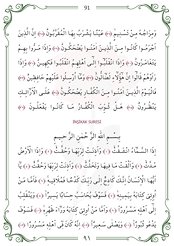 91
وَمِزَاجُهُ مِنْ تَسْنِيمٍ عَيْنًا يَشْرَبُ بِهَا الْمُقَرَّبُونَ إِنَّ الَّذِينَ
أَجْرَمُوا كَانُوا مِنَ الَّذِينَ آمَنُوا يَضْحَكُونَ وَإِذَا مَرُّوا بِهِمْ
يَتَغَامَزُونَ وَإِذَا انْقَلَبُوا إِلَى أَهْلِهِمُ انْقَلَبُوا فَكِهِينَ وَإِذَا
رَأَوْهُمْ قَالُوا إِنَّ هَؤُلَاءِ لَضَالُّونَ وَمَا أُرْسِلُوا عَلَيْهِمْ حَافِظِينَ
فَالْيَوْمَ الَّذِينَ آمَنُوا مِنَ الْكُفَّارِ يَضْحَكُونَ عَلَى الْأَرَائِكِ
يَنْظُرُونَ هَلْ ثُوِّبَ الْكُفَّارُ مَا كَانُوا يَفْعَلُونَ
İNŞİKAK SURESİ
بِسْمِ اللَّهِ الرَّحْمَنِ الرَّحِيمِ
إِذَا السَّمَاءُ انْشَقَّتْ وَأَذِنَتْ لِرَبِّهَا وَحُقَّتْ وَإِذَا الْأَرْضُ
مُدَّتْ وَأَلْقَتْ مَا فِيهَا وَتَخَلَّتْ وَأَذِنَتْ لِرَبِّهَا وَحُقَّتْ يَا
أَيُّهَا الْإِنْسَانُ إِنَّكَ كَادِحٌ إِلَى رَبِّكَ كَدْحًا فَمُلَاقِيهِ فَأَمَّا مَنْ
أُوتِيَ كِتَابَهُ بِيَمِينِهِ فَسَوْفَ يُحَاسَبُ حِسَابًا يَسِيرًا وَيَنْقَلِبُ
إِلَى أَهْلِهِ مَسْرُورًا وَأَمَّا مَنْ أُوتِيَ كِتَابَهُ وَرَاءَ ظَهْرِهِ فَسَوْفَ
يَدْعُو ثُبُورًا وَيَصْلَى سَعِيرًا إِنَّهُ كَانَ فِي أَهْلِهِ مَسْرُورًا
٩١